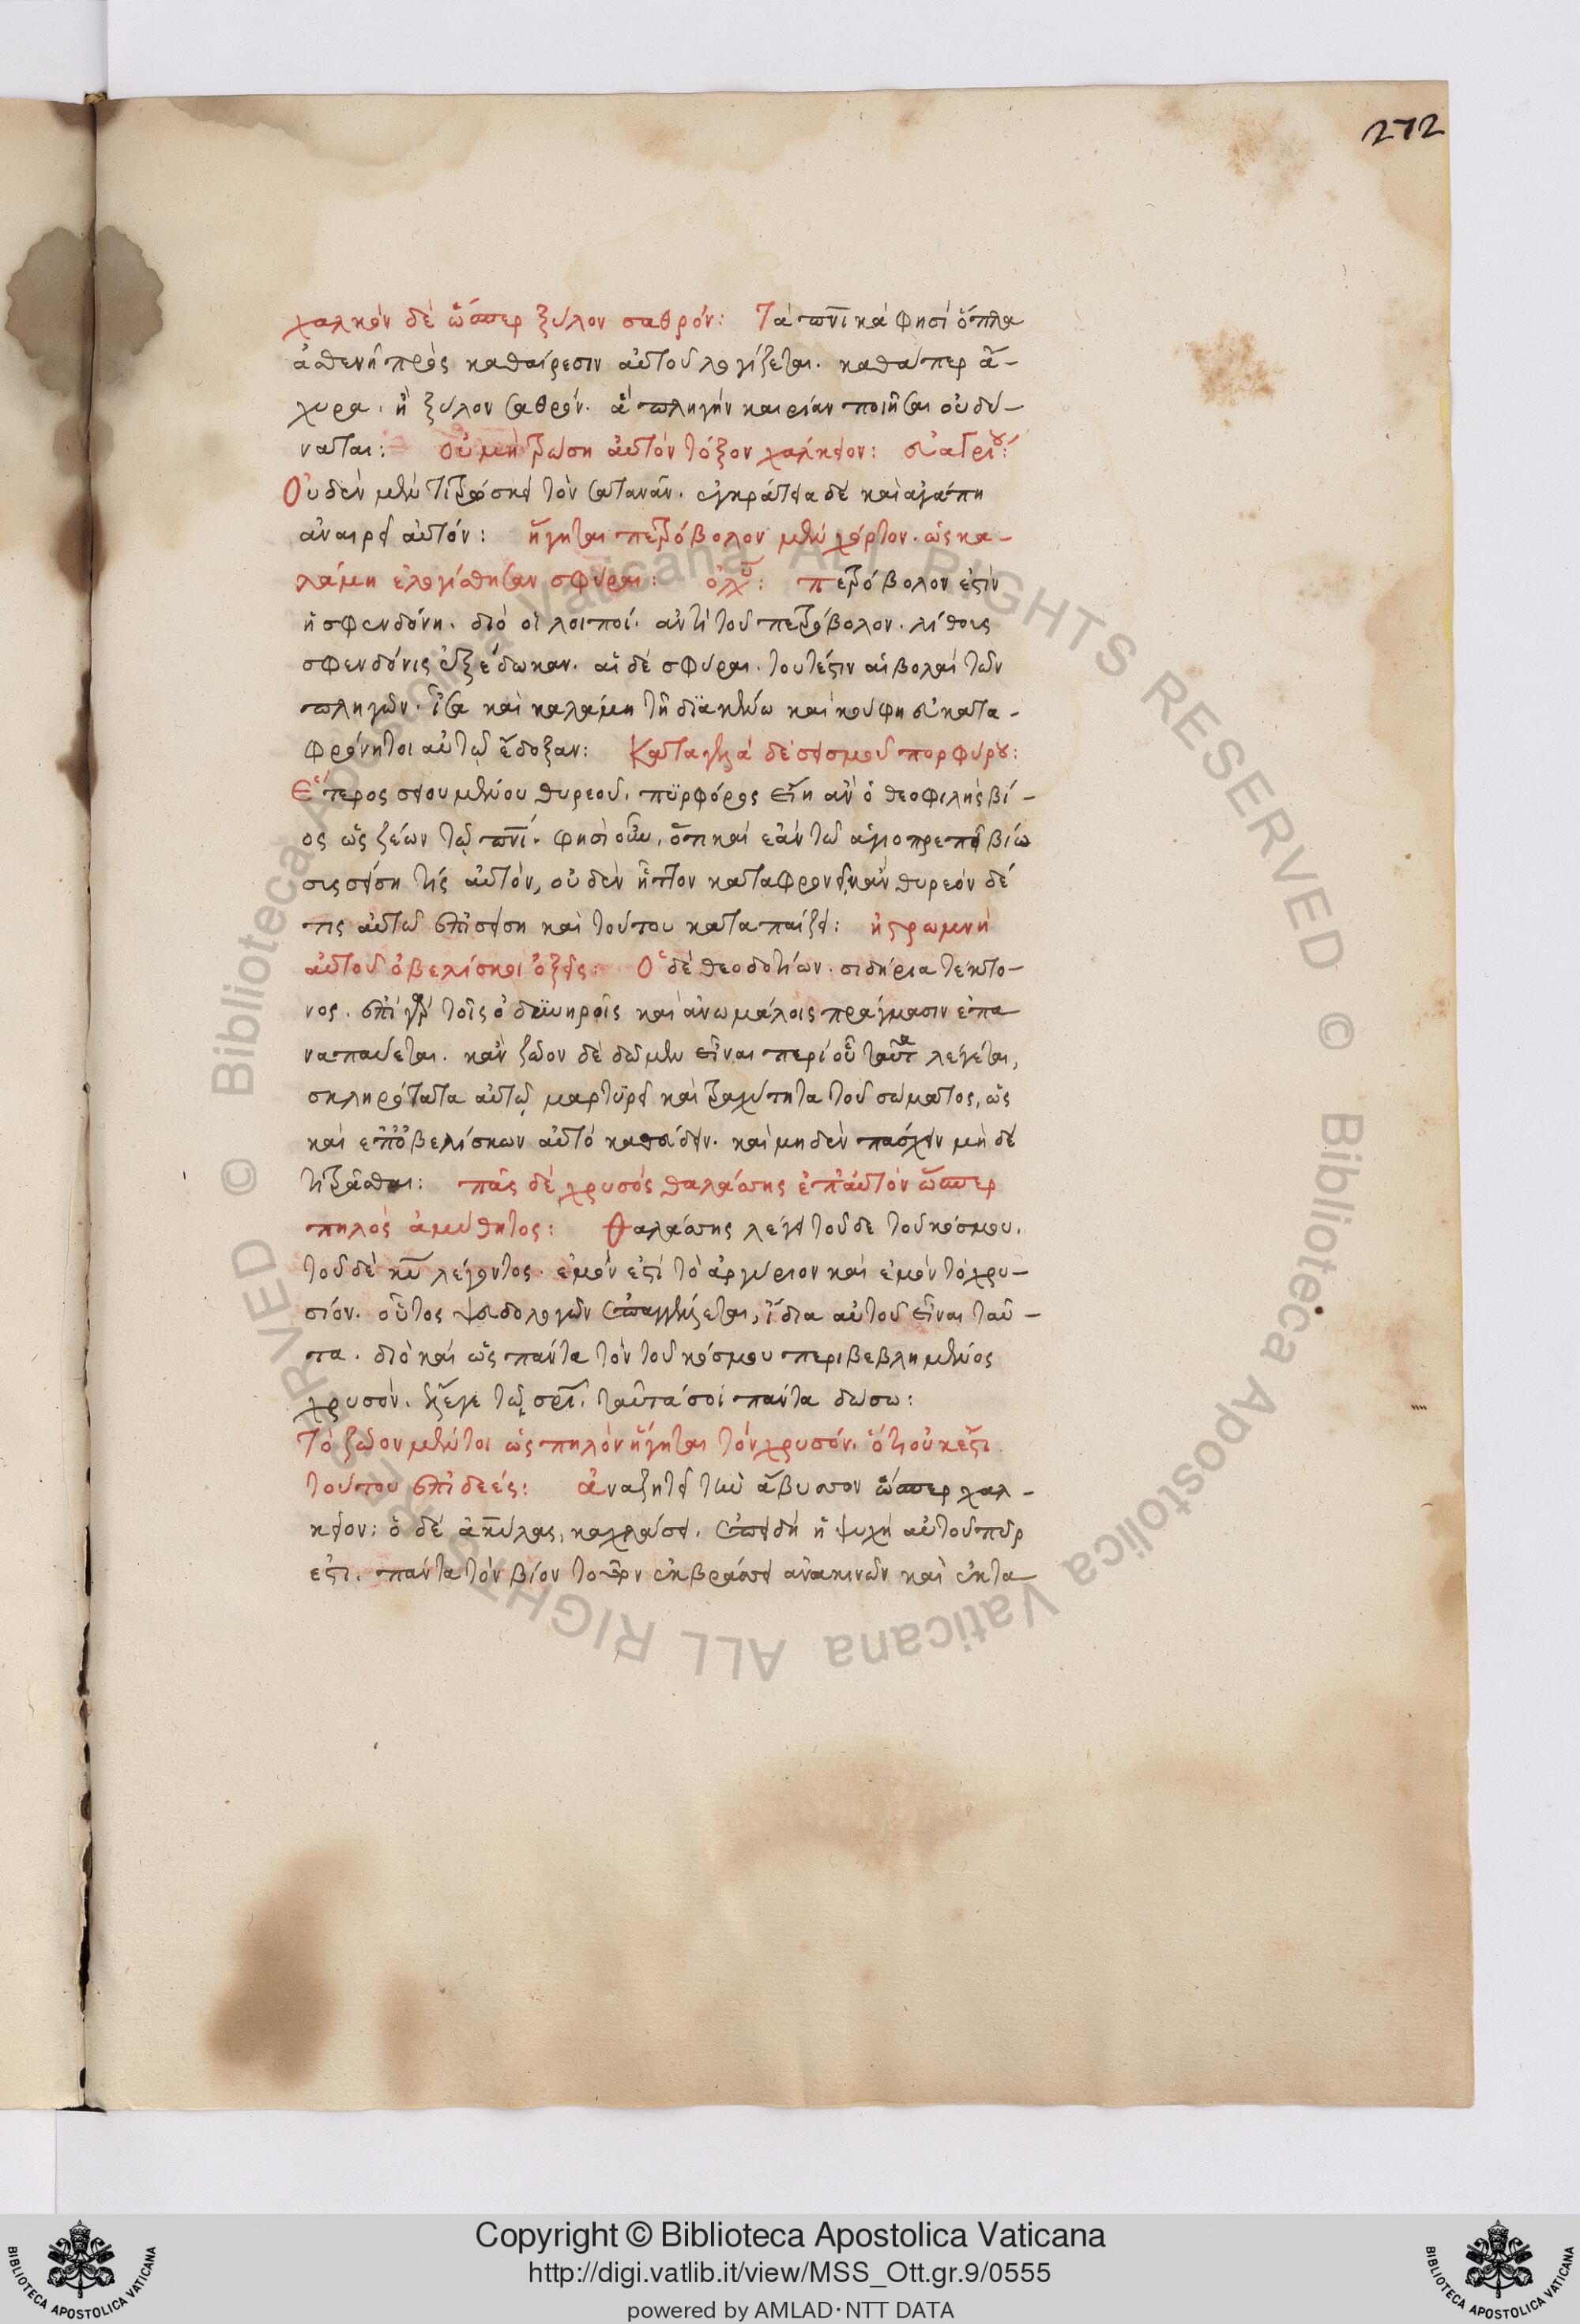 272
χαλκὸν δὲ ὥσπερ ξύλον σαθρόν: Τὰ πνικά φησὶ ὅπλα
ἀσθενῆ πρὸς καθαίρεσιν αὐτοῦ λογίζεται. καθάπερ ἄ-
χυρα. ἢ ξύλον σαθρόν. ἃ πληγὴν καιρίαν ποιῆσαι οὐ δύ-
ναται: οὐ μὴ τρώση αὐτὸν τόξον χαλκειον:
Οὐδὲν μὲν τιτρώσκει τὸν σατανᾶν. ἐγκράτεια δὲ καὶ ἀγάπη
ἀναιρεῖ αὐτόν: ἥγηται πετρόβολον μὲν χόρτον. ὡς κα-
λάμη ἐλογίσθησαν σφύραι: ὀλυ: πετρόβολον ἐστὶν
ἡ σφενδόνη. διὸ οἱ λοιποί. ἀντὶ τοῦ πετρόβολον. λίθοις
σφενδόνις ἐξέδωκαν. αἱ δὲ σφύραι. τουτέστιν αἱ βολαὶ τῶν
πληγῶν. ἴσα καὶ καλάμη τῆ διακένω καὶ κούφη εὐκατα-
φρόνητοι αὐτῷ ἔδοξαν: Καταγελᾶ δὲ σεισμοῦ πορφύρου:
Ἕτερος σειομένου θυρεοῦ. πυρφόρος εἴη ἂν ὁ θεοφιλὴς βί-
ος ὡς ζέων τῷ πνι. φησὶ οὖν, ὅτι καὶ ἐὰν τῶ ἁγιοπρεπεῖ βίω
συσσείση τίς αὐτὸν, οὐδὲν ἧττον καταφρονεῖ, κἂν θυρεὸν δέ
τις αὐτῶ ἐπισείση καὶ τούτου καταπαίζει: ἡ στρωμνὴ
αὐτοῦ ὀβελίσκοι ὀξεῖς: Ὁ δὲ θεοδοτίων. σιδήρια τέκτο-
νος. ἐπὶ γὰρ τοῖς ὀδυνηροῖς καὶ ἀνωμάλοις πράγμασιν ἐπα
ναπαύεται. κἂν ζῶον δὲ δῶμεν εἶναι περὶ οὗ ταῦτα λέγεται,
σκληρότατα αὐτῷ μαρτυρεῖ καὶ τραχύτητα τοῦ σώματος, ὡς
καὶ ἐπ' ὀβελίσκων αὐτὸ καθεύδειν. καὶ μηδὲν πάσχειν μὴ δὲ
τιτρᾶσθαι: πᾶς δὲ χρυσὸς θαλάσσης ἐπ' αὐτὸν ὥσπερ
πηλὸς ἀμύθητος: Θαλάσσης λέγει τοῦδε τοῦ κόσμου.
τοῦ δὲ κυ λέγοντος. ἐμὸν ἐστὶ τὸ ἀργύριον καὶ ἐμὸν τὸ χρυ-
σίον. οὗτος ψευδολογῶν ἐπαγγέλλεται, ἴδια αὐτοῦ εἶναι ταῦ-
τα. διὸ καὶ ὡς πάντα τὸν τοῦ κόσμου περιβεβλημένος
χρυσὸν. ἔλεγε τῷ σρι. ταῦτά σοι πάντα δώσω:
Τὸ ζῶον μέντοι ὡς πηλὸν ἥγηται τὸν χρυσόν. ὅτι οὐκ ἔστι
τούτου ἐπιδεές: ἀναζητεῖ τὴν ἄβυσσον ὥσπερ χαλ-
κειον: ὁ δὲ ἀκύλας, καχλάσει. ἐπειδὴ ἡ ψυχὴ αὐτοῦ πῦρ
ἐστι. πάντα τὸν βίον ἐκβράσσει ἀνακινῶν καὶ ἐκτα
Copyright © Biblioteca Apostolica Vaticana
http://digi.vatlib.it/view/MSS_Ott.gr.9/0555
powered by AMLAD·NTT DATA